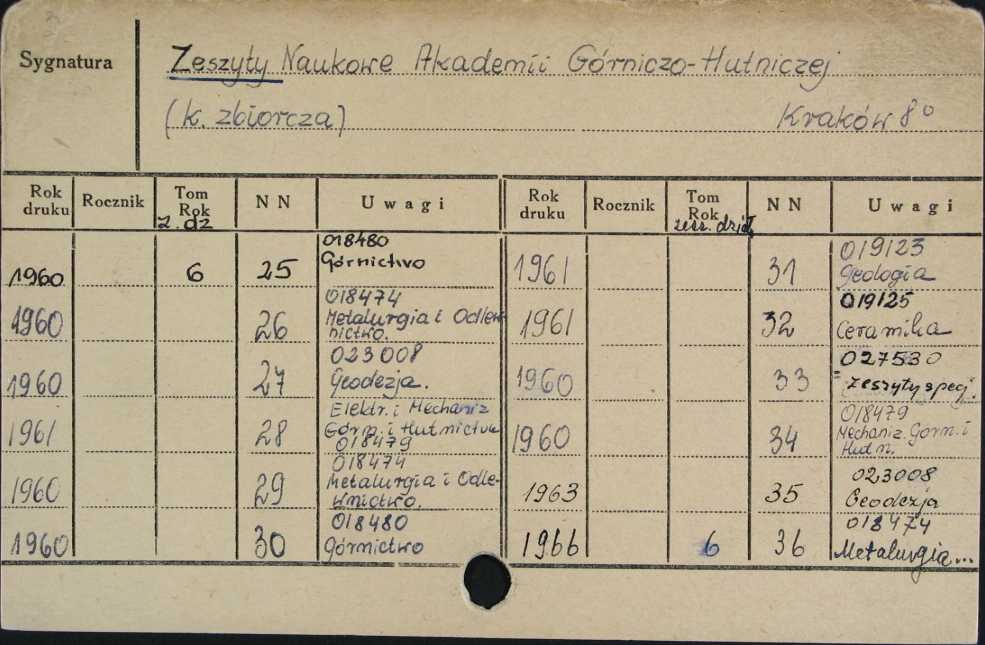 Sygnatura
Zeszyty Naukowe Akademii Górniczo-Hutniczej
(k. zbiorcza) Kraków 8°
Rok druku Rocznik Tom Rok z. dz NN Uwagi
1960 6 25 018480 Górnictwo
1960 26 018474 Metalurgia i Odlewnictwo.
1960 27 023008 Geodezja.
1961 28 Elektr. i Mechaniz Górn. i Hutnictwa 018479
1960 29 018474 Metalurgia i Odlewnictwo.
1960 30 018480 Górnictwo
Rok druku Rocznik Tom Rok zesz. dział NN Uwagi
1961 31 019123 Geologia
1961 32 019125 Ceramika
1960 33 027530 Zeszyty specj.
1960 34 018479 Mechaniz. Górn. i Hutn.
1963 35 023008 Geodezja
1966 6 36 018474 Metalurgia...